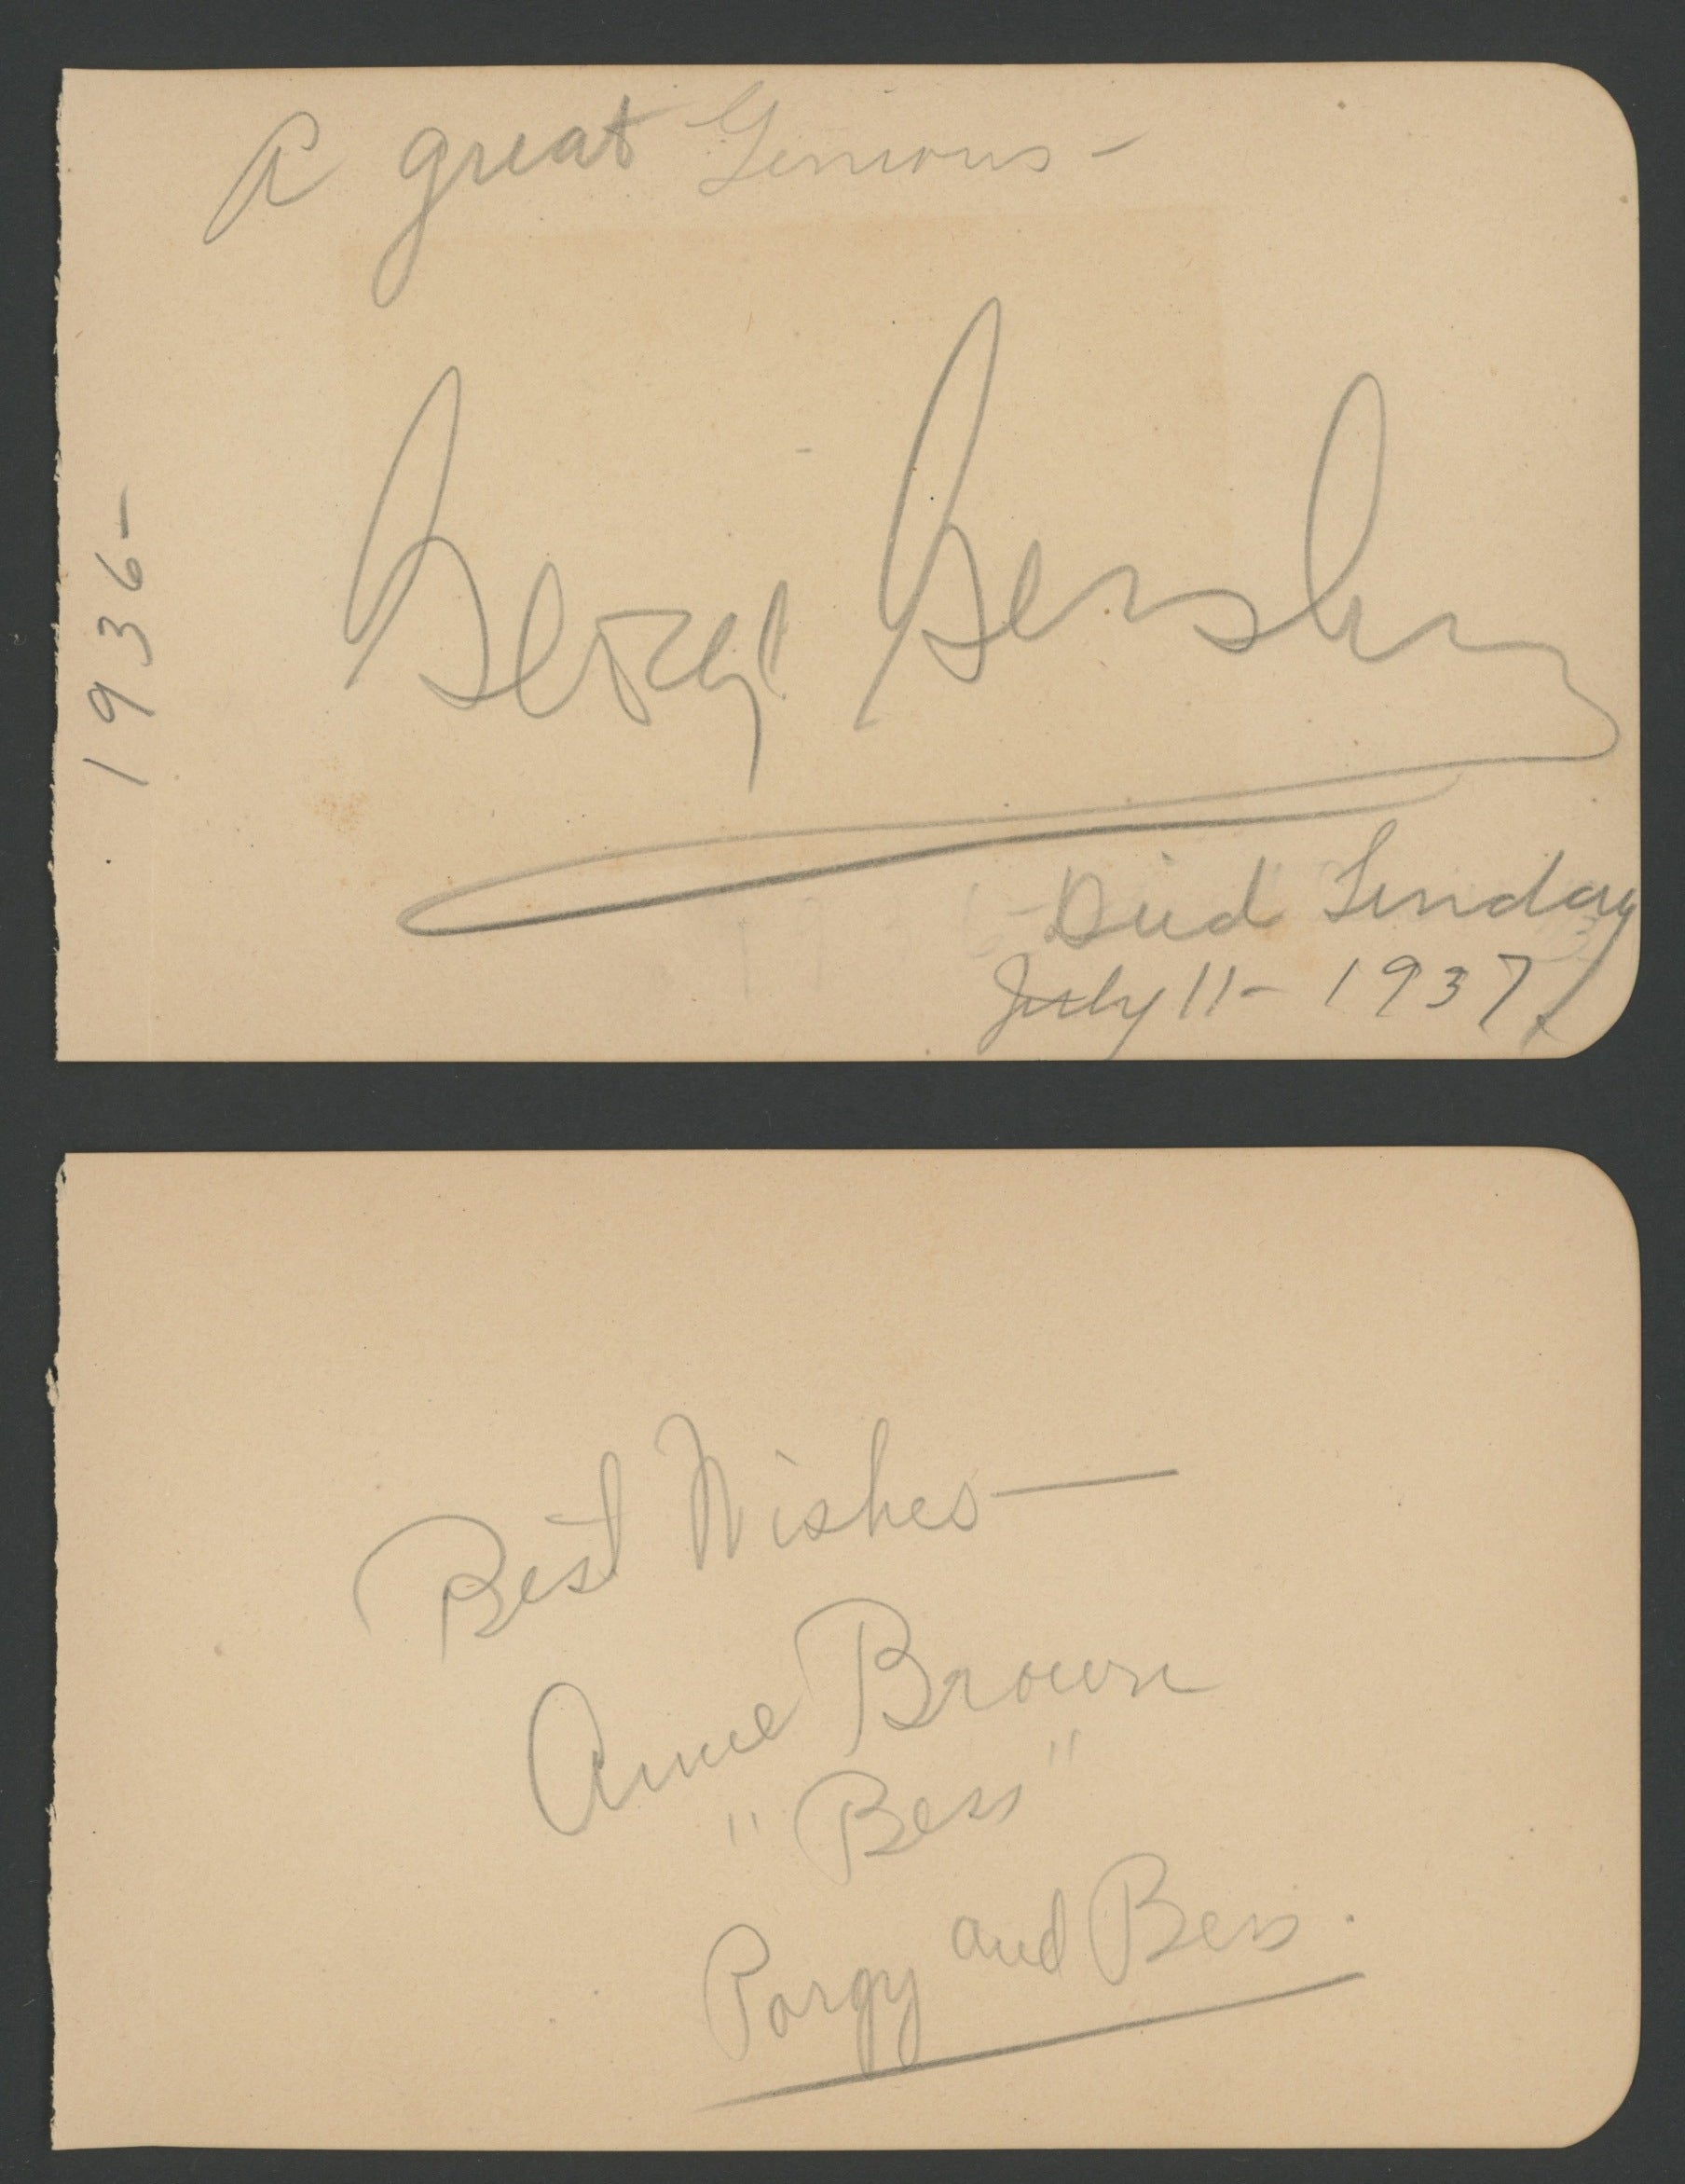 A great Genious -
George Gershwin
1936-
Died Sunday
July 11 - 1937
Best Wishes —
Anne Brown
"Bess"
Porgy and Bess.